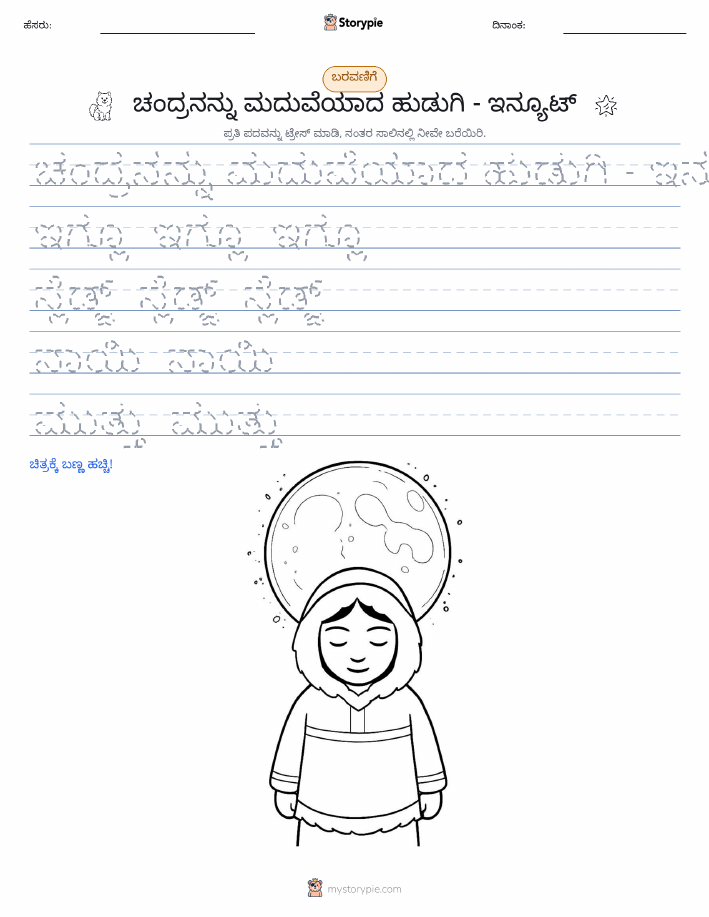 ಹೆಸರು:
Storypie
ದಿನಾಂಕ:
ಬರವಣಿಗೆ
ಚಂದ್ರನನ್ನು ಮದುವೆಯಾದ ಹುಡುಗಿ - ಇನ್ಯೂಟ್
ಪ್ರತಿ ಪದವನ್ನು ಟ್ರೇಸ್ ಮಾಡಿ, ನಂತರ ಸಾಲಿನಲ್ಲಿ ನೀವೇ ಬರೆಯಿರಿ.
ಚಂದ್ರನನ್ನು ಮದುವೆಯಾದ ಹುಡುಗಿ -
ಇಗ್ಲೂ ಇಗ್ಲೂ ಇಗ್ಲೂ
ಸ್ಲೆಡ್ಜ್ ಸ್ಲೆಡ್ಜ್ ಸ್ಲೆಡ್ಜ್
ನಾಯಿ ನಾಯಿ
ಮುತ್ತು ಮುತ್ತು
ಚಿತ್ರಕ್ಕೆ ಬಣ್ಣ ಹಚ್ಚಿ!
mystorypie.com